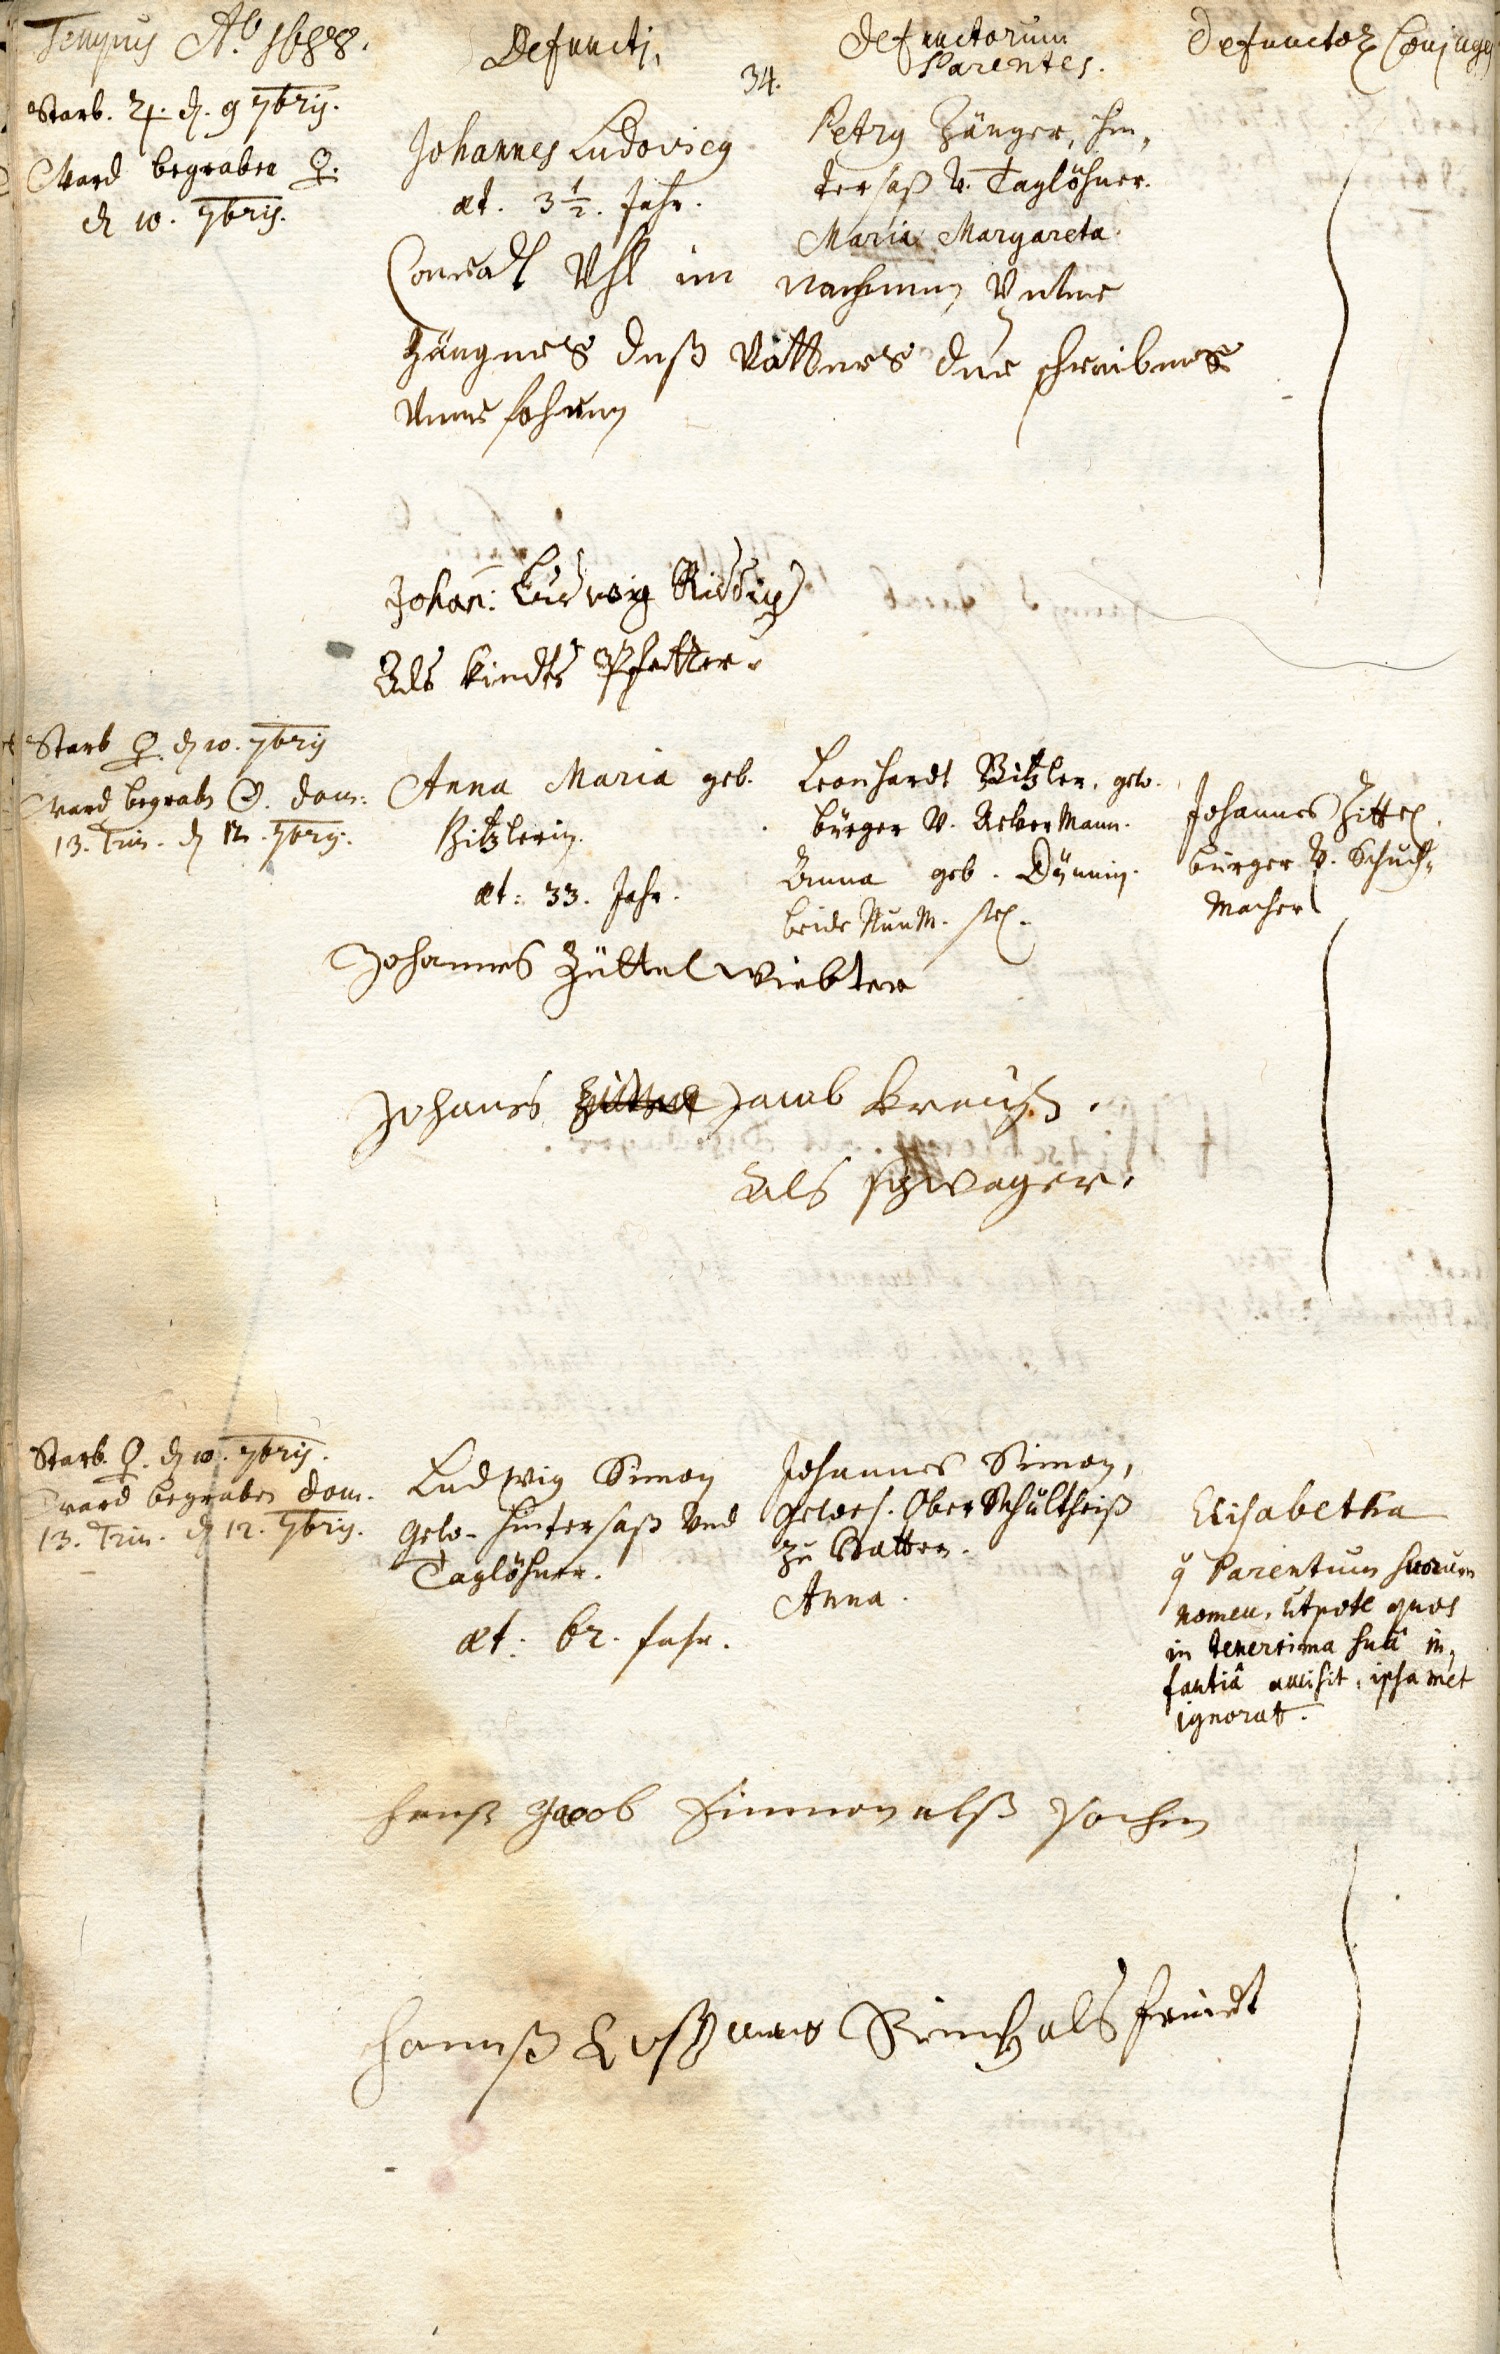 Tempus Ao. 1688.
Defuncti,
Defunctorum
Parentes.
Defunctor Conjuges
34.
Starb. ♃. d. 9 7bris.
Ward begraben ♀.
d 10. 7bris.
Johannes Ludovicg
æt. 3 ½. Jahr.
Petrg Zänger, Hin,
tersaß v. Taglöhner.
Maria Margareta.
Conradt Vhl im Nachmen
Zängers deß Vatters der schreibens
Vnerfahren
Johan: Ludwig
Als Kindts Pfetter.
Starb ♀. d 10. 7bris
Ward begrabn ☉. dom:
13. Trin. d 12. 7bris.
Anna Maria geb.
Bitzlerin.
æt: 33. Jahr.
Leonhardt Bitzler, gew.
bürger V. Ackermann.
Anna geb.
beide NunM. sel.
Johannes Zittel,
bürger V. Schuch,
Macher
Johannes Züttel
Johanes Jacob Kreutz.
Als schwager.
Starb ♀. d 10. 7bris.
ward begraben dom.
13. Trin. d 12. 7bris.
Ludwig Simon
Gew. Hintersaß Vnd
Taglöhner.
æt: 62. Jahr.
Johannes Simon,
gewes. Ober Schultheiß
zu
Anna.
Elisabetha
q Parentum suorum
nomen, utpote quos
in tenerrima suâ in,
fantiâ amisit, ipsamet
ignorat.
Hanß Jacob Simmon alß sochn
Hannß als freindt